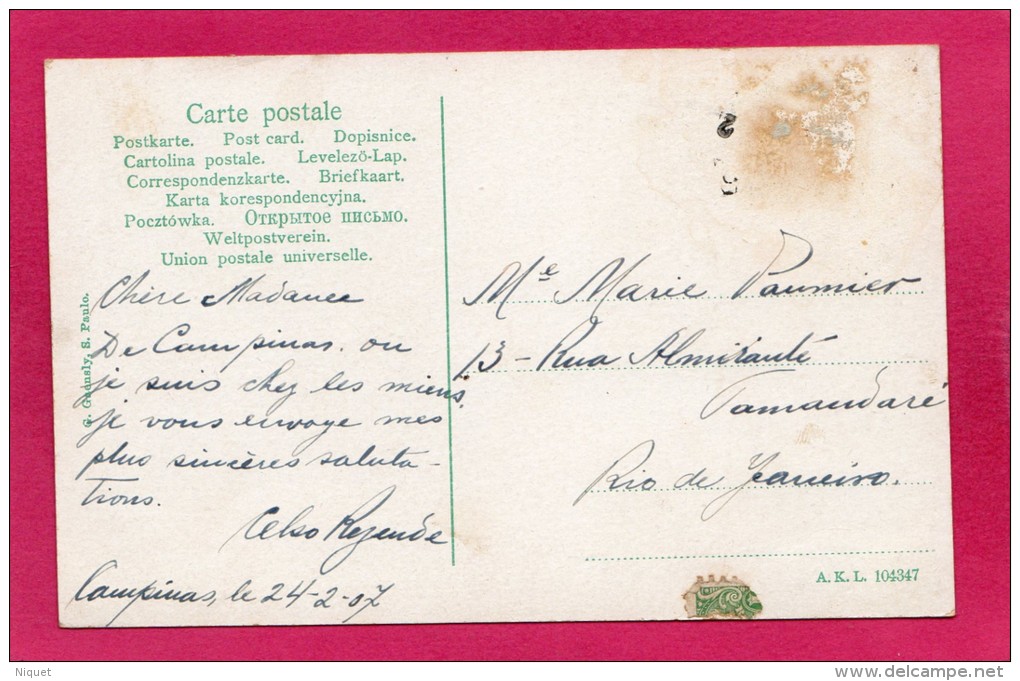 Carte postale
Postkarte. Post card. Dopisnice.
Cartolina postale. Levelező-Lap.
Correspondenzkarte. Briefkaart.
Karta korespondencyjna.
Pocztówka. Открытое письмо.
Weltpostverein.
Union postale universelle.
G. Gaensly, S. Paulo.
Chère Madame
De Campinas. ou
je suis chez les miens,
je vous envoye mes
plus sincères saluta-
tions.
Celso Rezende
Campinas, le 24-2-07
Me Marie Paumier
13 - Rua Almiranté
Tamandaré
Rio de Janeiro.
A.K.L. 104347
Niquet
www.delcampe.net